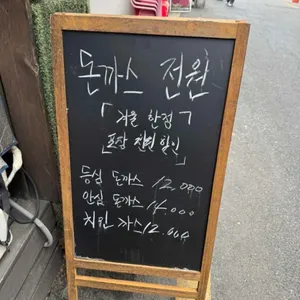 돈까스 전원
「겨울 한정
포장 천원 할인」
등심 돈까스 12.000
안심 돈까스 14.000
치킨 까스 12.000